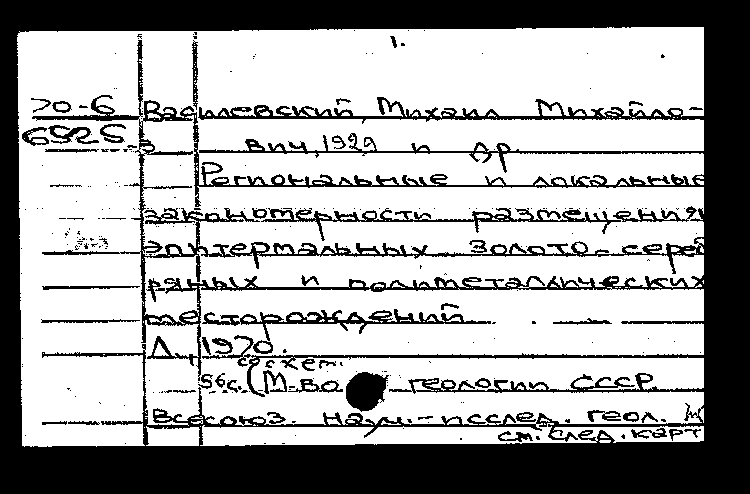 1.
70-6 Василевский, Михаил Михайло-
6925 вич, 1929 и др.
Региональные и локальные
закономерности размещения
эпитермальных золото-сереб
ряных и полиметаллических
месторождений
Л., 1970.
со схем.
56с. (М-во геологии СССР.
Всесоюз. науч.-исслед. геол.
см. след. карт